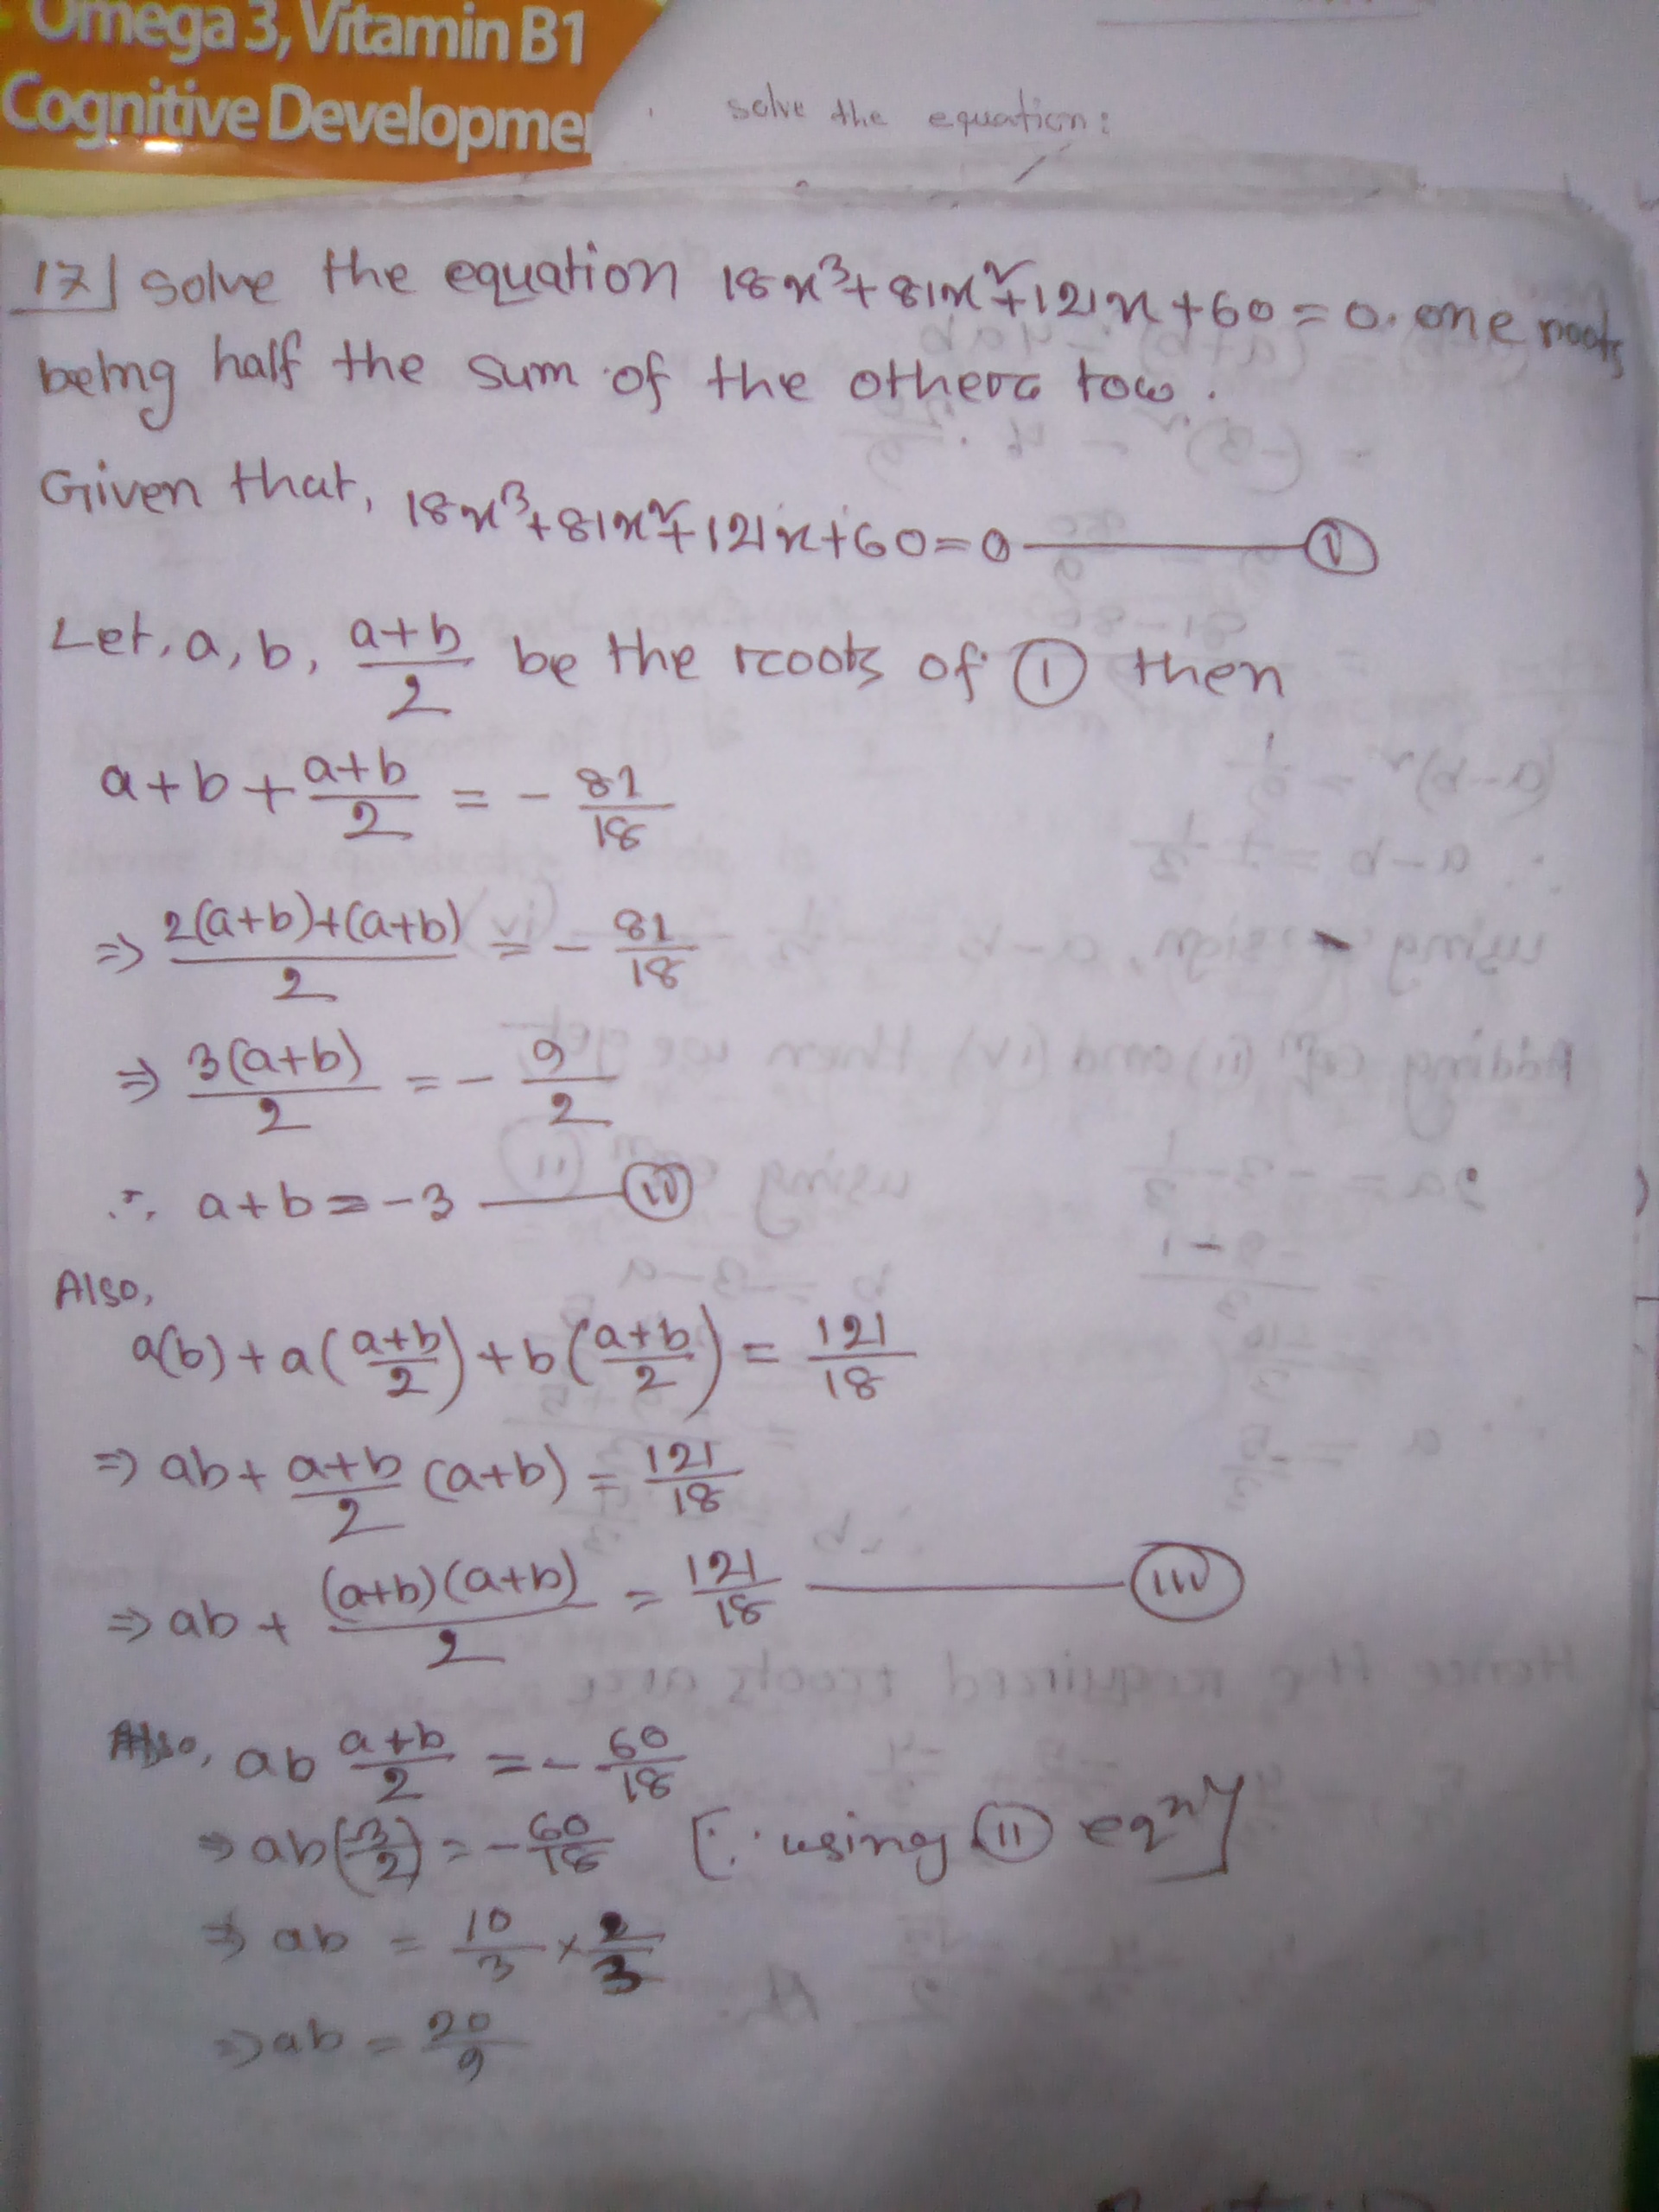 Omega 3, Vitamin B1
Cognitive Developme
solve the equation:
17] solve the equation 18x³+81x²+121x+60=0. one roots
being half the sum of the otherr tow.
Given that, 18x³+81x²+121x+60=0 —— (i)
Let, a, b, (a+b)/2 be the rcoots of (i) then
a+b+(a+b)/2 = -81/18
⇒ (2(a+b)+(a+b))/2 = -81/18
⇒ 3(a+b)/2 = -9/2
∴ a+b=-3 —— (ii)
Also,
a(b)+a((a+b)/2)+b((a+b)/2) = 121/18
⇒ ab+(a+b)/2 (a+b) = 121/18
⇒ ab+((a+b)(a+b))/2 = 121/18 —— (iii)
Also, ab (a+b)/2 = -60/18
⇒ ab(-3/2) = -60/18 [∵ using (ii) eqⁿ]
⇒ ab = 10/3 × 2/3
⇒ ab = 20/9